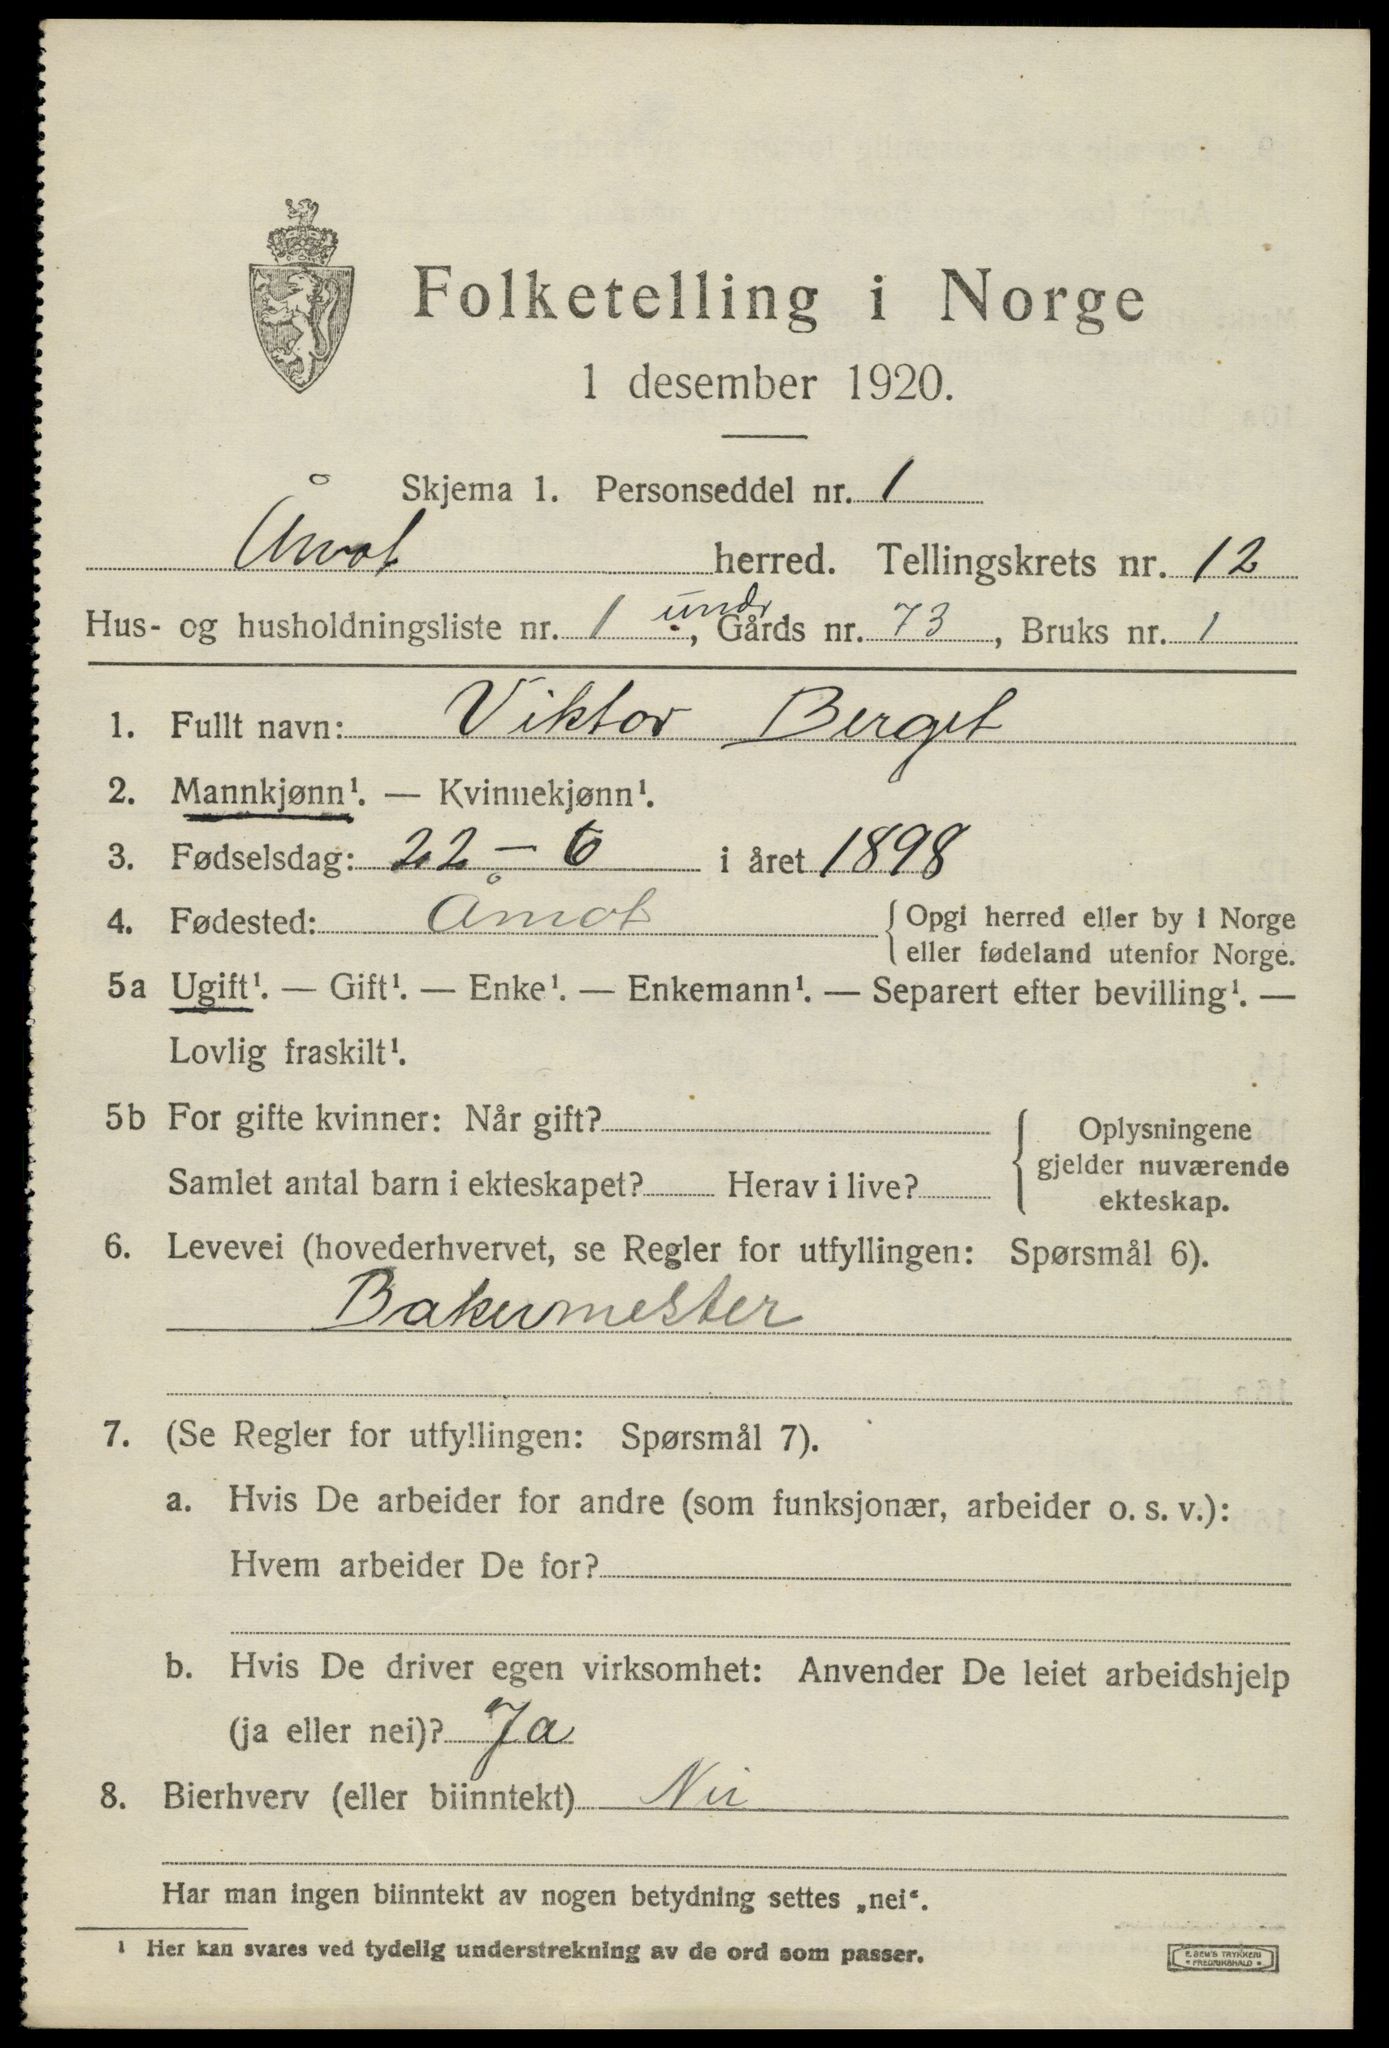 Folketelling i Norge
1 desember 1920.
Skjema 1. Personseddel nr. 1
Åmot herred. Tellingskrets nr. 12
undr
Hus- og husholdningsliste nr. 1, Gårds nr. 73, Bruks nr. 1
1. Fullt navn: Viktor Berget
2. Mannkjønn¹. — Kvinnekjønn¹.
3. Fødselsdag: 22 – 6 i året 1898
4. Fødested: Åmot { Opgi herred eller by i Norge
eller fødeland utenfor Norge.
5a Ugift¹. — Gift¹. — Enke¹. — Enkemann¹. — Separert efter bevilling¹. —
Lovlig fraskilt¹.
5b For gifte kvinner: Når gift?
Samlet antal barn i ekteskapet? Herav i live?
{ Oplysningene
gjelder nuværende
ekteskap.
6. Levevei (hovederhvervet, se Regler for utfyllingen: Spørsmål 6).
Bakermester
7. (Se Regler for utfyllingen: Spørsmål 7).
a. Hvis De arbeider for andre (som funksjonær, arbeider o. s. v.):
Hvem arbeider De for?
b. Hvis De driver egen virksomhet: Anvender De leiet arbeidshjelp
(ja eller nei)? Ja
8. Bierhverv (eller biinntekt) Nei
Har man ingen biinntekt av nogen betydning settes „nei“.
¹ Her kan svares ved tydelig understrekning av de ord som passer.
E. SEM'S TRYKKERI
* FREDRIKSHALD *